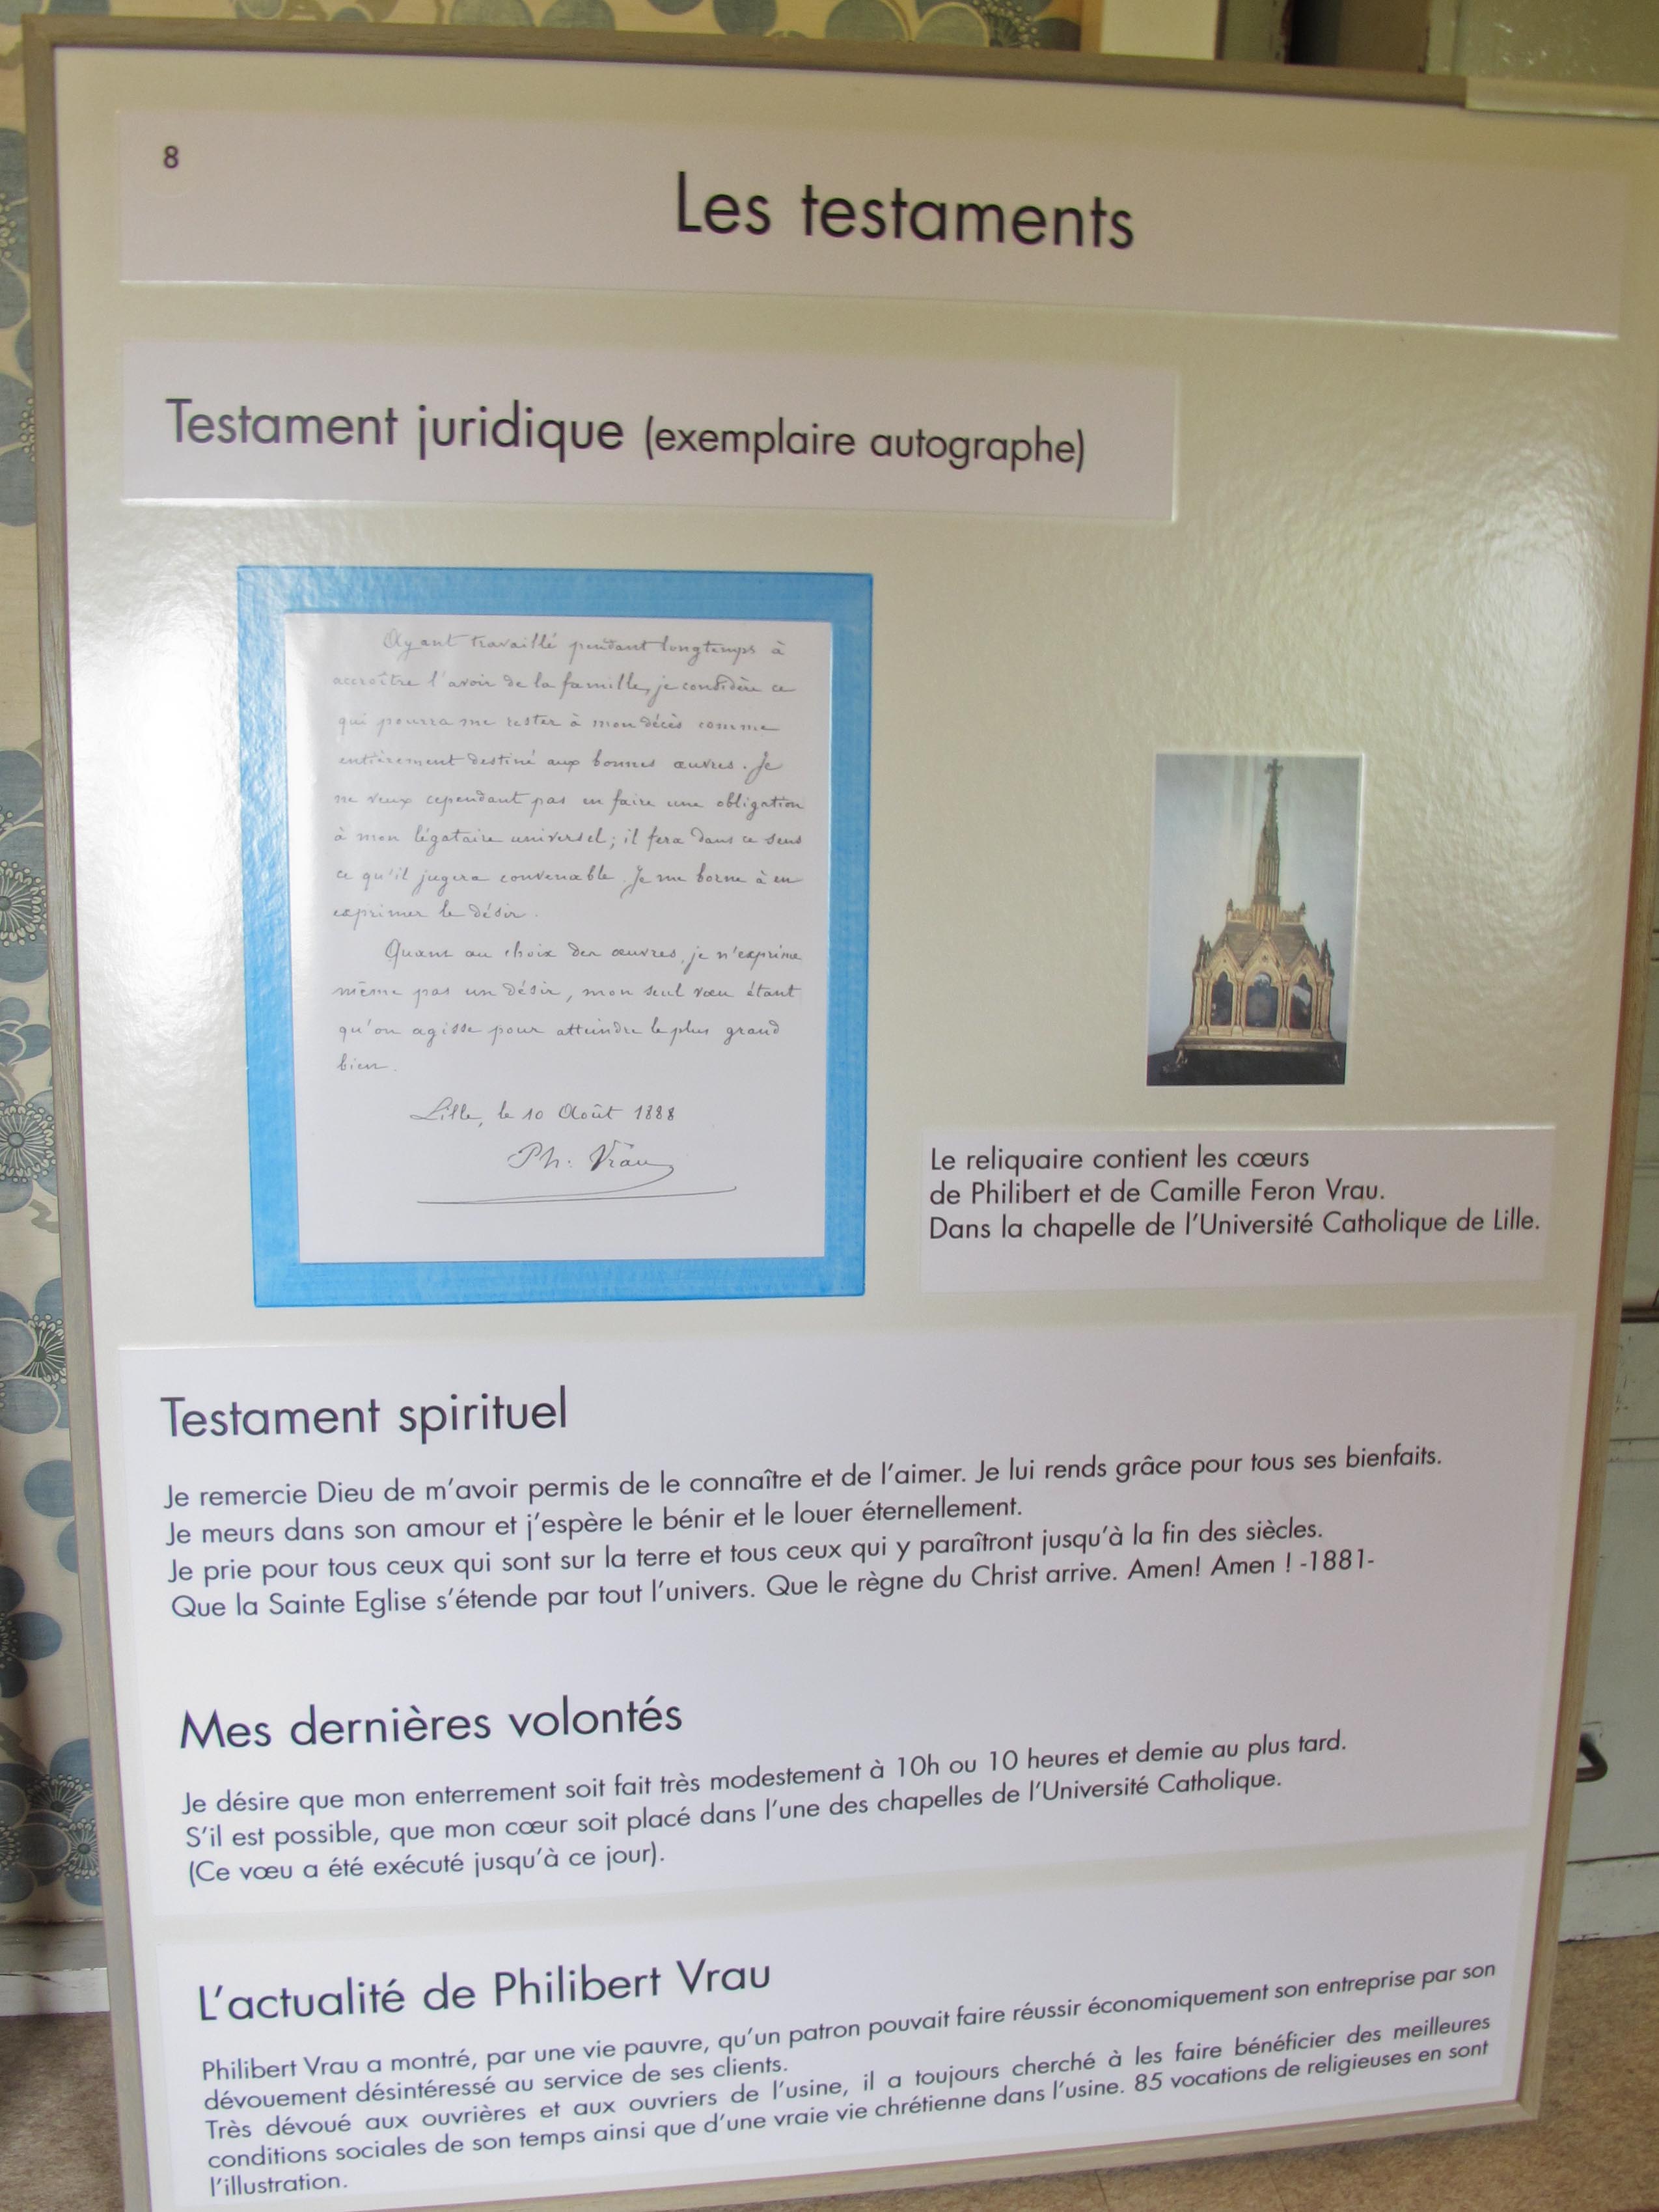 8
Les testaments
Testament juridique (exemplaire autographe)
Ayant travaillé pendant longtemps à
accroître l'avoir de la famille, je considère ce
qui pourra me rester à mon décès comme
entièrement destiné aux bonnes œuvres. Je
ne veux cependant pas en faire une obligation
à mon légataire universel; il fera dans ce sens
ce qu'il jugera convenable. Je me borne à en
exprimer le désir.
Quant au choix des œuvres, je n'exprime
même pas un désir, mon seul vœu étant
qu'on agisse pour atteindre le plus grand
bien.
Lille, le 10 Août 1888
Ph. Vrau
Le reliquaire contient les cœurs
de Philibert et de Camille Feron Vrau.
Dans la chapelle de l'Université Catholique de Lille.
Testament spirituel
Je remercie Dieu de m'avoir permis de le connaître et de l'aimer. Je lui rends grâce pour tous ses bienfaits.
Je meurs dans son amour et j'espère le bénir et le louer éternellement.
Je prie pour tous ceux qui sont sur la terre et tous ceux qui y paraîtront jusqu'à la fin des siècles.
Que la Sainte Eglise s'étende par tout l'univers. Que le règne du Christ arrive. Amen! Amen ! -1881-
Mes dernières volontés
Je désire que mon enterrement soit fait très modestement à 10h ou 10 heures et demie au plus tard.
S'il est possible, que mon cœur soit placé dans l'une des chapelles de l'Université Catholique.
(Ce vœu a été exécuté jusqu'à ce jour).
L'actualité de Philibert Vrau
Philibert Vrau a montré, par une vie pauvre, qu'un patron pouvait faire réussir économiquement son entreprise par son
dévouement désintéressé au service de ses clients.
Très dévoué aux ouvrières et aux ouvriers de l'usine, il a toujours cherché à les faire bénéficier des meilleures
conditions sociales de son temps ainsi que d'une vraie vie chrétienne dans l'usine. 85 vocations de religieuses en sont
l'illustration.